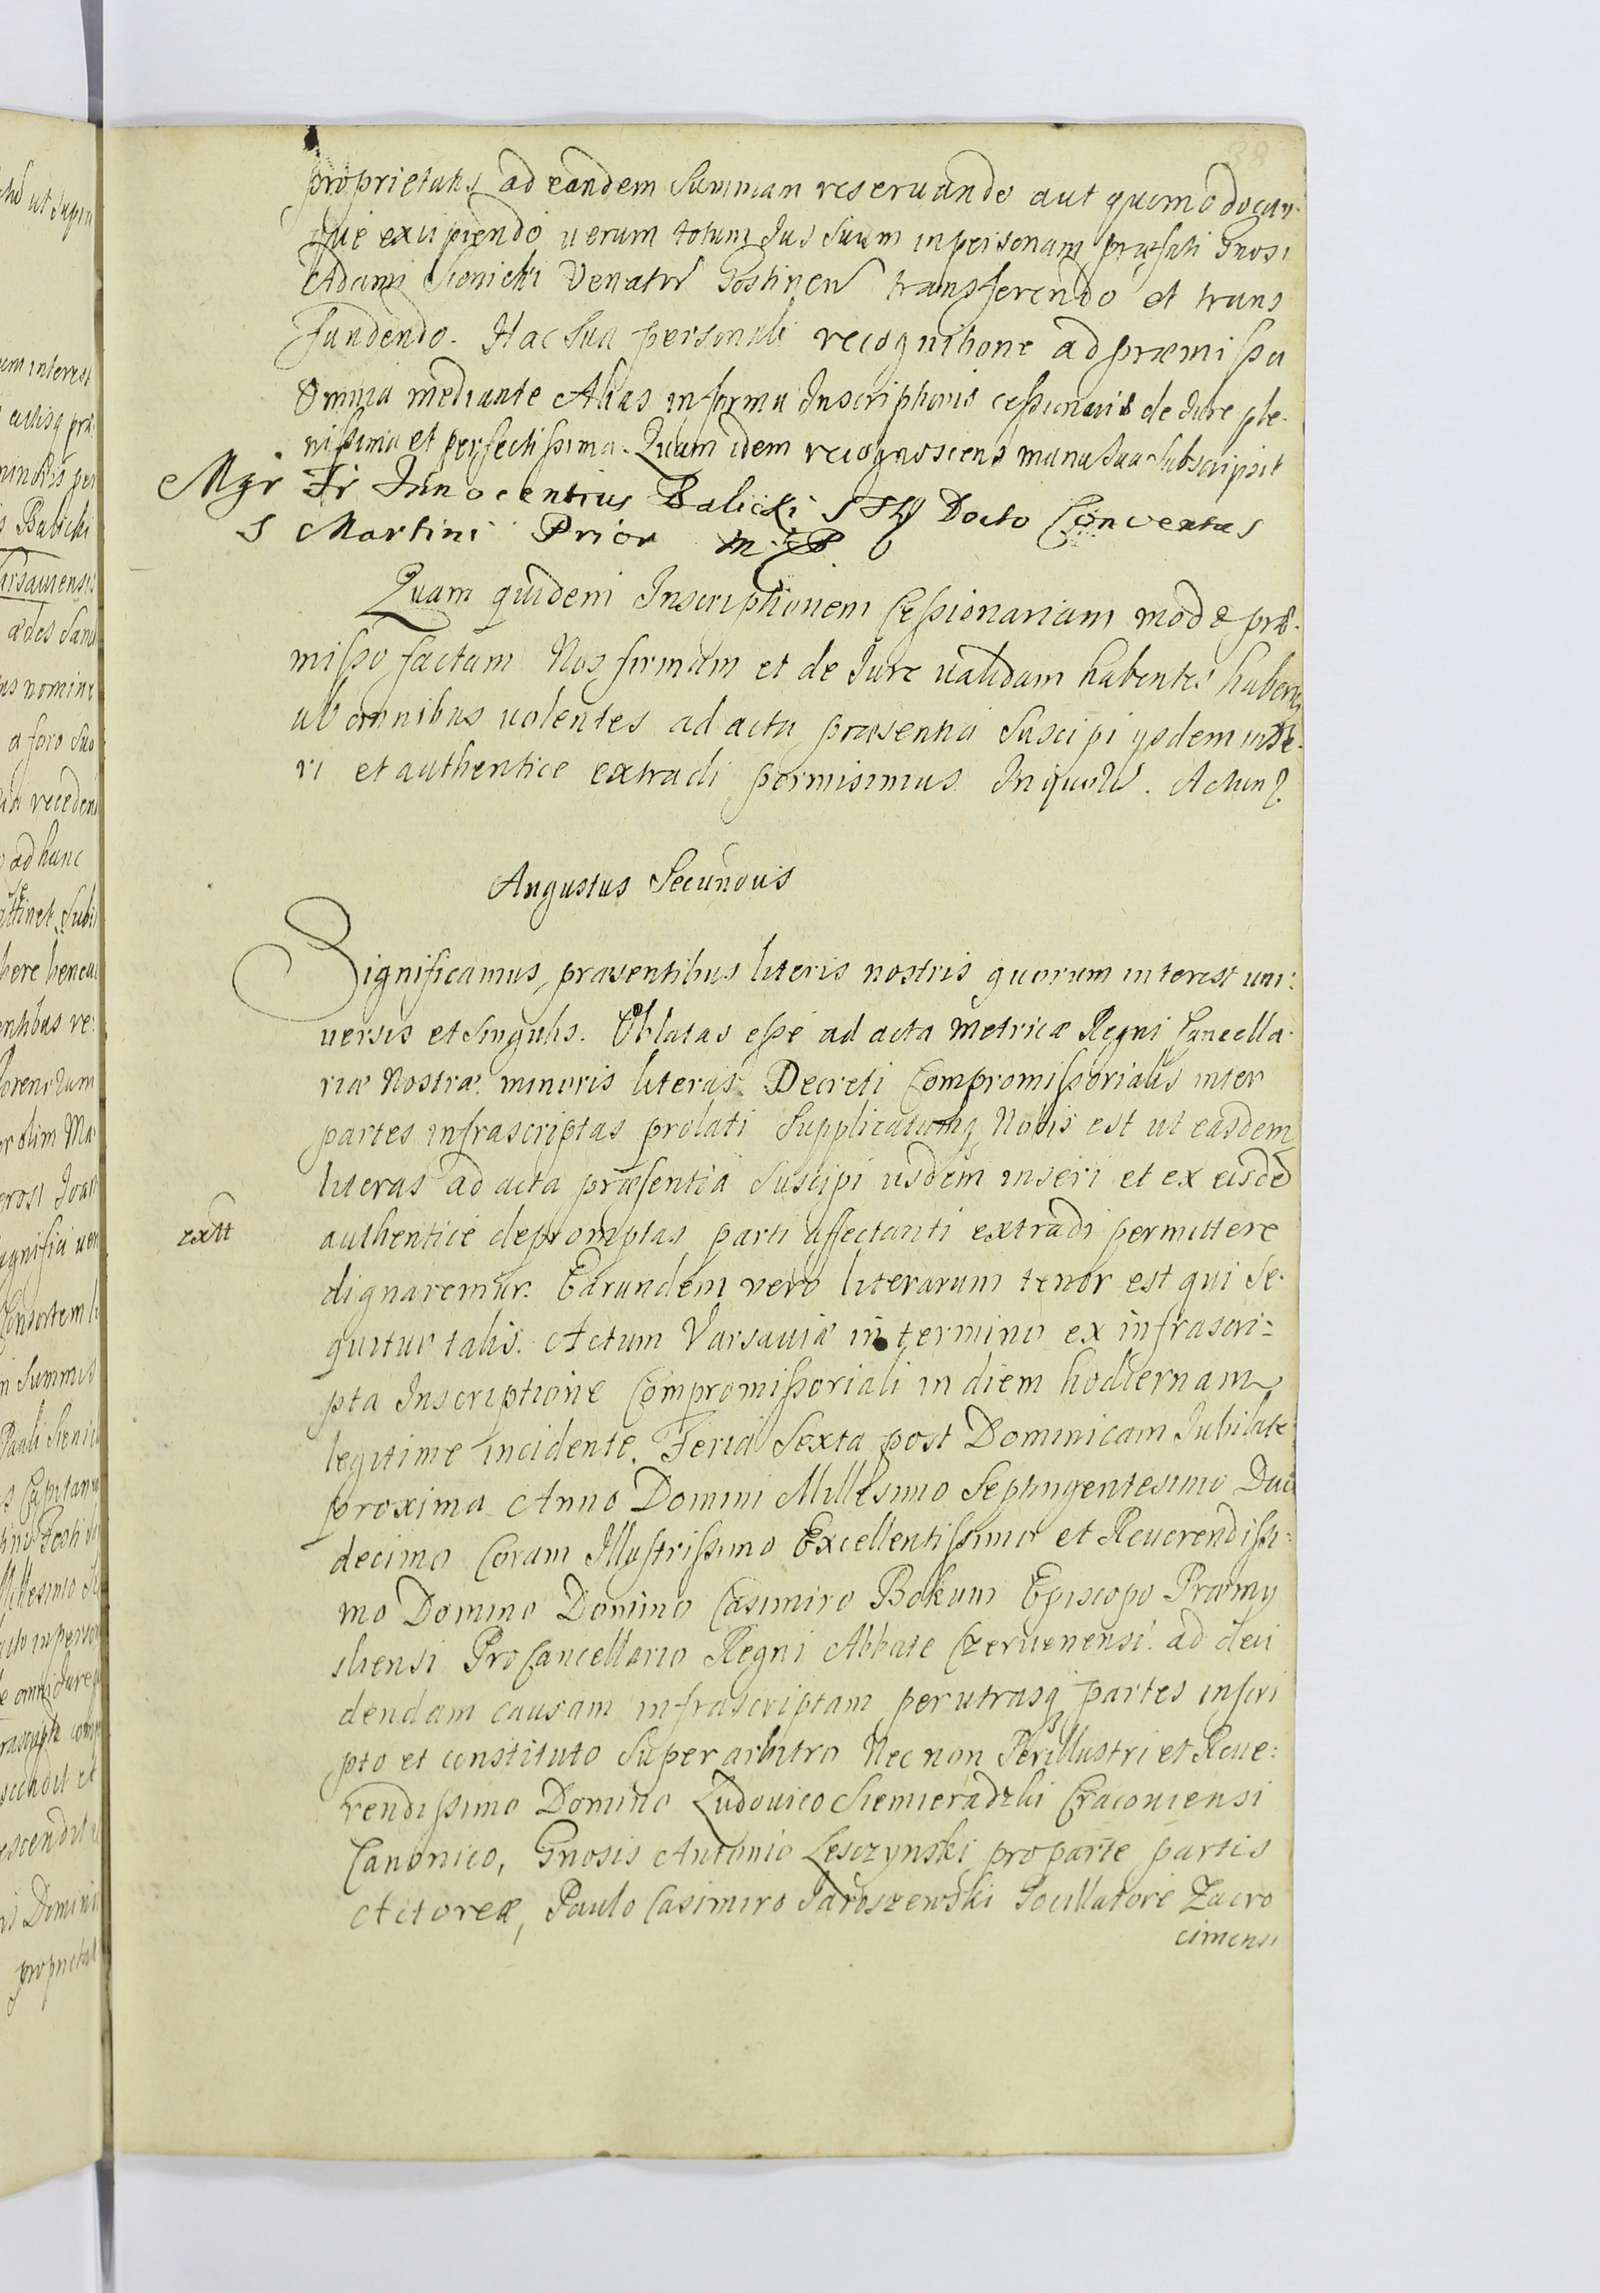 38
proprietatis ad eandem summam reseruando aut quomodocun-
que excipiendo uerum totum Jus suum in personam præfati Gnosi
Adami Sienicki Venatris Gostinen transferendo et trans
fundendo. Hac sua personali recognitione ad præmissa
Omnia mediante Alias in forma Inscriptionis cessionaris de Jure ple-
nissima et perfectissima. Quam idem recognoscens manu sua subscripsit
Mgr Fr Innocentius Balicki STh Docto Conventus
S Martini Prior mp
Quam quidem Inscriptionem Cessionariam modo præ-
misso factam Nos firmam et de Jure ualidam habentes haberiq
ab omnibus uolentes ad acta præsentia Suscipi ysdem inse-
ri et authentice extradi permisimus. In quor. Actum
Augustus Secundus
Significamus præsentibus literis nostris quorum interest uni:
uersis et singulis. Oblatas esse ad acta Metricæ Regni Cancella-
riæ Nostræ minoris literas Decreti Compromissorialis inter
partes infrascriptas prolati Supplicatumq Nobis est ut easdem
literas ad acta præsentia Suscipi iisdem inseri et ex eisdē
extt
authentice depromptas parti affectanti extradi permittere
dignaremur. Earundem vero literarum tenor est qui se-
quitur talis. Actum Varsauiæ in termino ex infrascri=
pta Inscriptione Compromissoriali in diem hodiernam
legitime incidente. Feria Sexta post Dominicam Jubilate
proxima Anno Domini Millesimo Septingentesimo Duo
decimo Coram Illustrissimo Excellentissimo et Reuerendissi:
mo Domino Domino Casimiro Bokum Episcopo Præmy
sliensi ProCancellario Regni Abbate Czeruenensi ad deci
dendam causam infrascriptam per utrasq partes inscri
pto et constituto Superarbitro Nec non Perillustri et Reue:
rendissimo Domino Ludouico Siemieradzki Cracouiensi
Canonico, Gnosis Antonio Lesczynski pro parte partis
Actoreæ, Paulo Casimiro Jaroszewski Pocillatore Zacro
cimensi